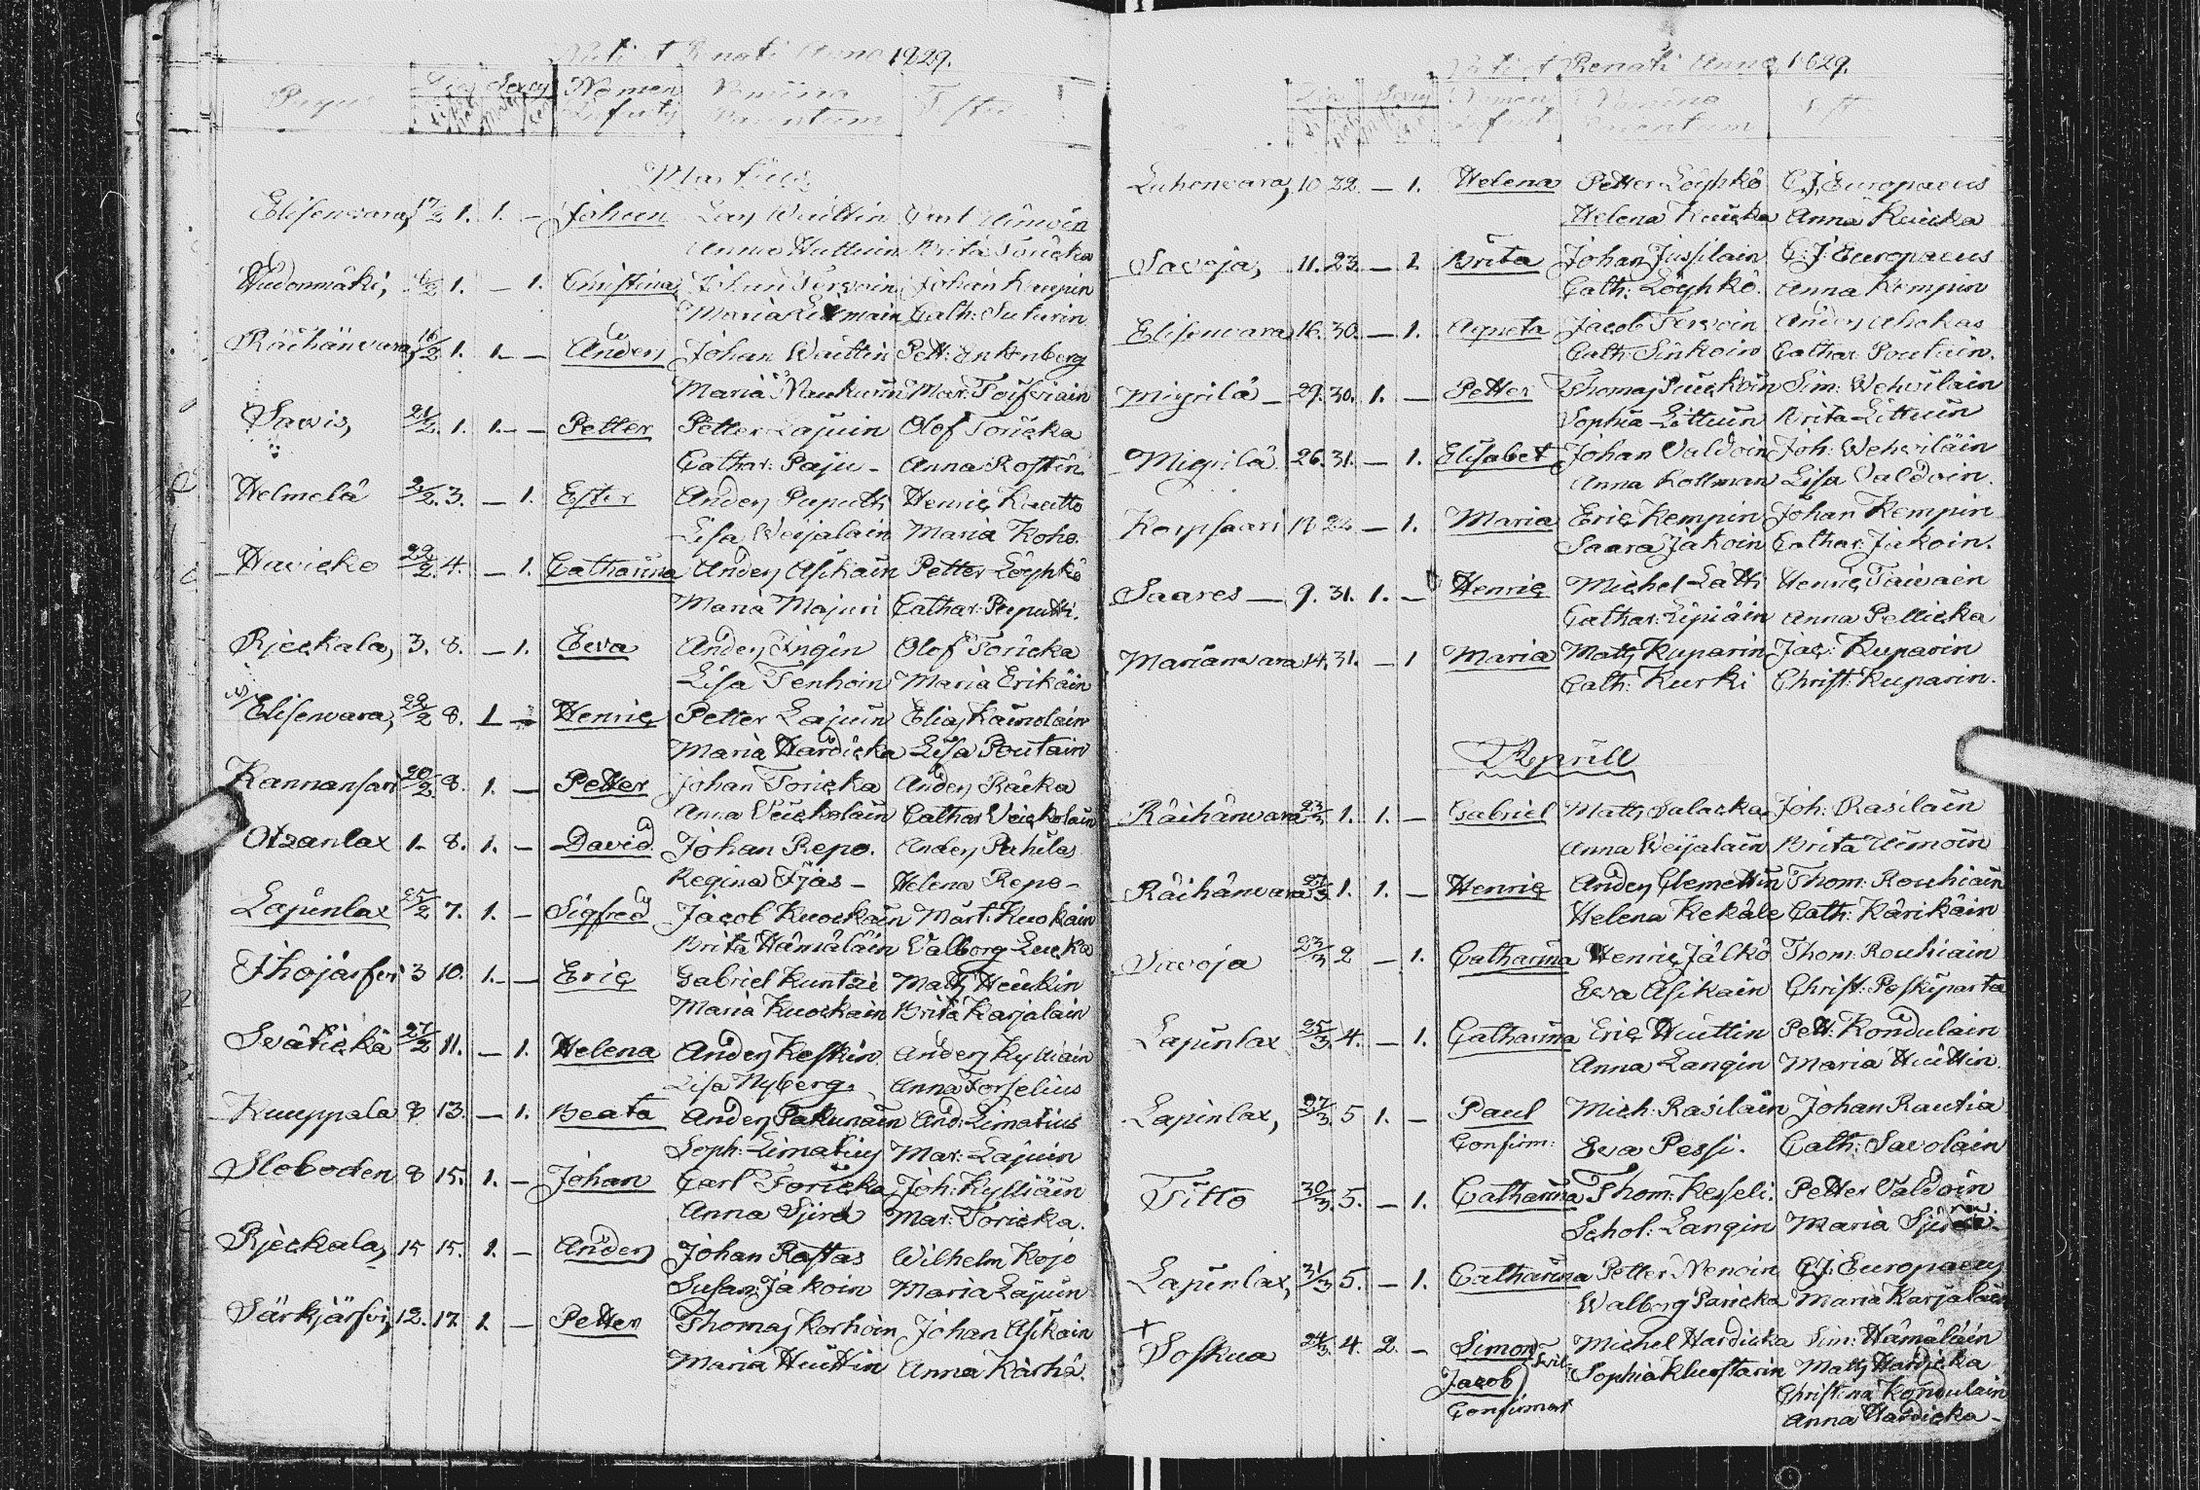 Nati et Renati Anno 1829.
Pagus Dies Sexus Nomen Nomina Testes
Infantis Parentum
Martius
Elisenvara, 17/2 1. 1. — Johan Huittin Carl Aimoin
Anna Huttuin Brita Toricka
Hudonmäki, 1. — 1. Christina Johan Tervoin Johan Kaupin
Maria Cath: Suturin
Räihänvara, 16/2 1. 1. — Anders Johan Waittin Pett: Enkenberg
Maria Naukuin Mar:
Savis, 21/2. 1. 1. — Petter Petter Lajuin Olof Toricka
Cathar: Paju – Anna Rostin
Helmelä 2/2. 3. — 1. Ester Anders Puputti Henric Kautto
Lisa Weijalain Maria Koho.
Huvicko 22/2. 4. — 1. Catharina Anders Asikain Petter Löyhkö
Maria Majuri Cathar: Puputti.
Rjeckala, 3. 8. — 1. Eeva Anders Ingin Olof Toricka
Lisa Tenhoin Maria Erikäin
Elisenvara, 22/2 8. 1 — Henric Petter Lajuin Elias Kainolain
Maria Hardicka Lisa Poutain
Kannansari 20/2. 8. 1. — Petter Johan Toricka Anders Räcka
Anna Veickolain Cathar Veickolain
Otsanlax 1. 8. 1. — David Johan Repo. Anders Pahilas
Regina Tjäs – Helena Repo –
Lapinlax 25/2 7. 1. — Sigfred Jacob Kuockain Märt: Kuokain
Brita Hämäläin Valborg Leucka
Ihojärfvi 3 10. 1. — Eric Gabriel Kuntzi Matts Heickin
Maria Kuockain Brita Karjalain
Svätickä 27/2 11. — 1. Helena Anders Keskin Anders Kylliäin
Lisa Nyberg. Anna Forselius
Kuuppala 8 13. — 1. Beata Anders Pakunain And: Limatius
Soph: Limatius Mar: Lajuin
Sloboden 8 15. 1. — Johan Carl Toricka Joh: Kylliäin
Anna Sjiro Mar: Toricka.
Rjeckala, 15 15. 1. — Anders Johan Rastas Wilhelm Kojo
Susan: Jakoin Maria Lajuin
Särkjärfvi, 12. 17. 1. — Petter Thomas Korhoin Johan Asikain
Maria Huittin Anna Karhu.
Nati et Renati Anno 1829.
Dies Sexus Nomen Nomina
Infantis Parentum
Luhenvara, 10 22. — 1. Helena Petter Löyhkö C. J. Europaeus
Helena Kuicka Anna Kuicka
Savoja, 11. 23. — 1. Brita Johan Jussilain C. J. Europaeus
Cath: Löyhkö. Anna Kempin
Elisenvara 16. 30. — 1. Agneta Jacob Tervoin Anders Ahokas
Cath: Sinkoin Cathar: Poutain.
Miynilä — 29. 30. 1. — Petter Thomas Suickoin Sim: Wehviläin
Sophia Littuin Brita Littuin
Miynilä 26. 31. — 1. Elisabet Johan Valdoin Joh: Wehviläin
Anna Kollman Lisa Valdoin.
Korpsaari 14 24 — 1. Maria Eric Kempin Johan Kempin
Saara Jakoin Cathar: Jakoin.
Saares — 9. 31. 1. — Henric Michel Lätti Henric Taivain
Cathar: Lipiäin Anna Pellicka
Marianvara 14. 31. — 1 Maria Matts Kuparin Jac: Kuparin
Cath: Kurki Christ: Kuparin.
Aprill
Räihänvara 23/3 1. 1. — Gabriel Matts Salacka Joh: Rasilain
Anna Weijalain Brita Aimoin
Räihänvara 27/3 1. 1. — Henric Anders Clemettin Thom: Rouhiain
Helena Kekäle Cath: Kärikäin
Savoja 23/3 2 — 1. Catharina Henric Jälkö Thom: Rouhiain
Eva Asikain Christ: Poskiparta
Lapinlax 25/3. 4. — 1. Catharina Eric Huittin Pett: Kondulain
Anna Langin Maria Huittin.
Lapinlax, 27/3. 5 1. — Paul Mich: Rasilain Johan Rautia
Confirm: Eva Pessi. Cath: Savolain
Titto 30/3. 5. — 1. Catharina Thom: Kesseli. Petter Valdoin
Schol: Langin Maria
Lapinlax, 31/3 5. — 1. Catharina Petter Nenoin C. J. Europaeus
Walborg Paricka Maria Karjalain
+
Soskua 24/3. 4. 2. — Simon Michel Hardicka Sim: Hämäläin
Jacob Sophia Klustarin Matts Hardicka
Confirmat Christina Kondulain
Anna Hardicka –